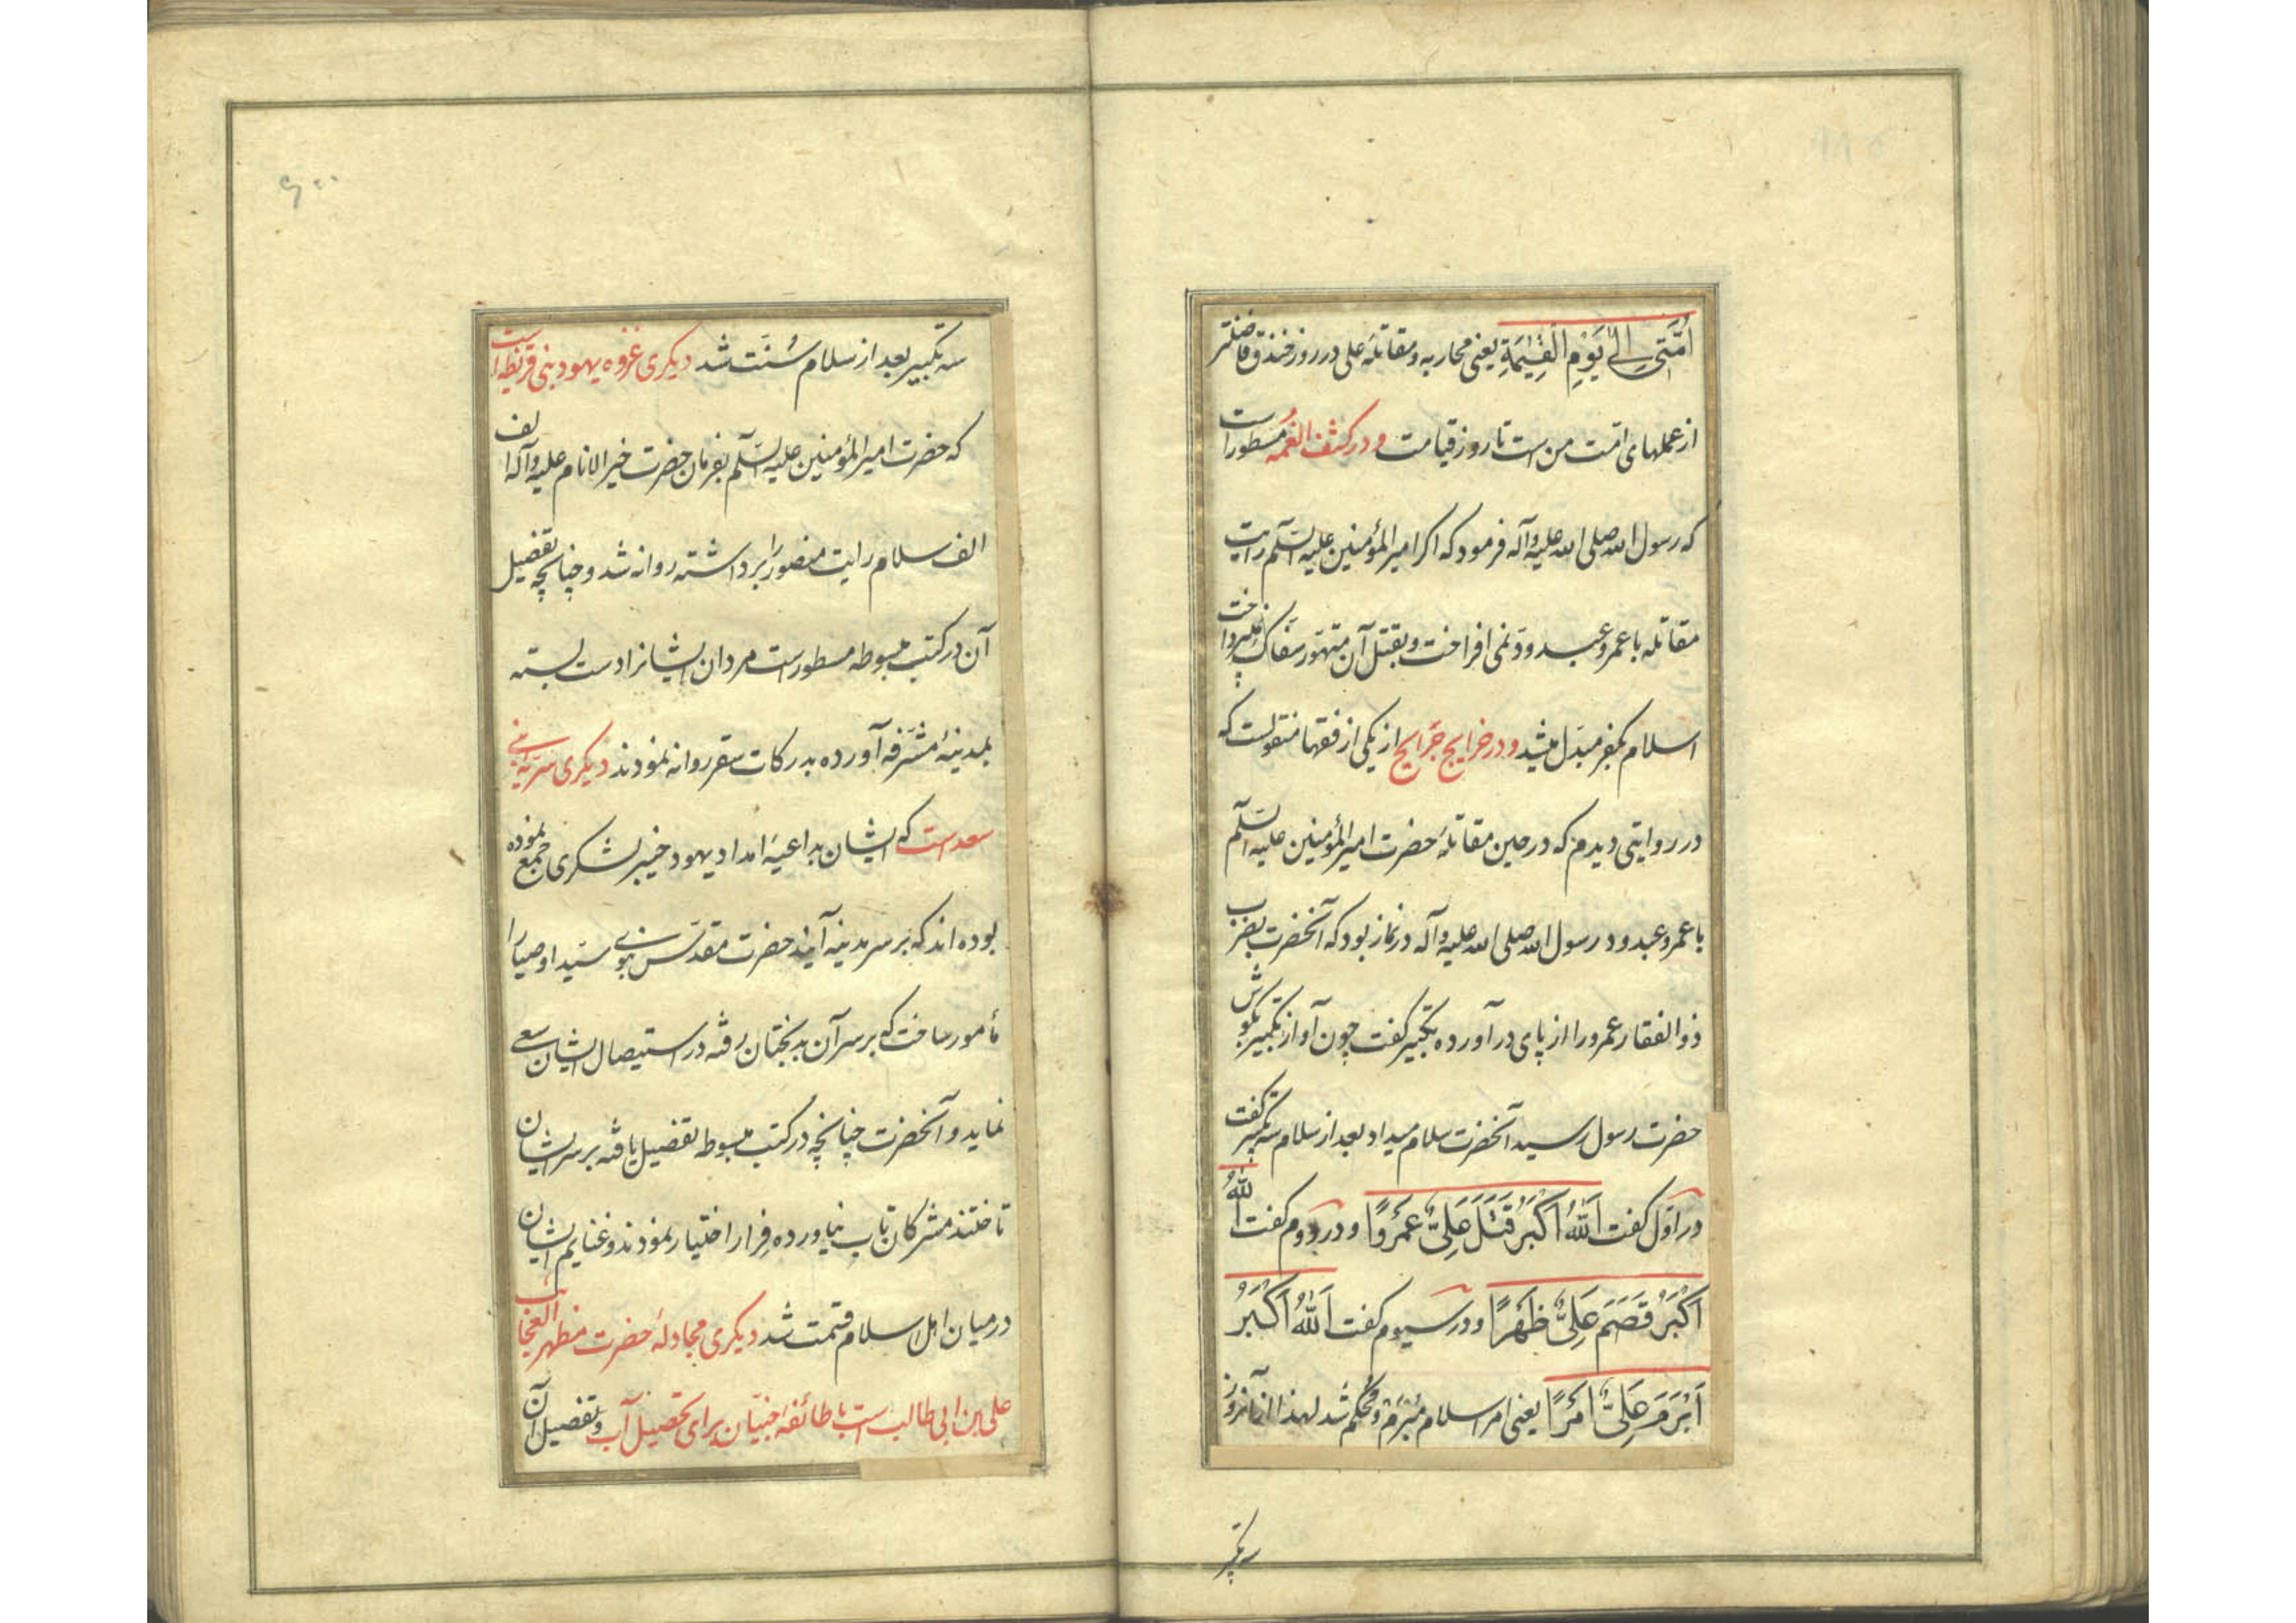 اُمَّتی اِلیٰ یَوْمِ الْقِیٰمَةِ یعنی محاربه و مقاتلهٔ علی در روز خندق فاضلتر
از عملهای امّت من است تا روز قیامت و در کشف الغمّه مسطور است
که رسول الله صلی الله علیه وآله فرمود که اکر امیرالمؤمنین علیه السّلم رایت
مقاتله با عمرو عبدودّ نمی افراخت و بقتل آن متهوّر سفّاک نمیپرداخت
اسلام بکفر مبدّل میشد و در خرایج جَرایح از یکی از فقها منقولست که
در روایتی دیدم که در حین مقاتلهٔ حضرت امیرالمؤمنین علیه السّلم
با عمرو عبدود رسول الله صلی الله علیه وآله در نماز بود که آنحضرت بضرب
ذوالفقار عمرو را از پای درآورده تکبیر کفت چون آواز تکبیر بکوش
حضرت رسول رسید آنحضرت سلام میداد بعد از سلام سه تکبیر کفت
در اوّل کفت اَللهُ اَکْبَرُ قَتَلَ عَلِیٌّ عَمْرَوًا و در دوم کفت اَللهُ
اَکْبَرُ قَصَمَ عَلِیٌّ ظَهْرًا و در سیوم کفت اَللهُ اَکْبَرُ
اَبْرَمَ عَلِیٌّ اَمْرًا یعنی امر اسلام مُبْرَم و محکم شد لهذا از آنروز
سه تکبیر
سه تکبیر بعد از سلام سُنّت شد دیکری غزوه یهود بنی قریظه است
که حضرت امیرالمؤمنین علیه السّلم بفرمان حضرت خیرالانام علیه وآله الف
الف سلام رایت منصور را برداشته روانه شد و چنانچه تفضیل
آن در کتب مبسوطه مسطور است مردان ایشانرا دست بسته
بمدینهٔ مشرّفه آورده بدرکات سقر روانه نمودند دیکری سرّیهٔ بنی
سعد است که ایشان بداعیهٔ امداد یهود خیبر لشکری جمع نموده
بوده اند که بر سر مدینه آیند حضرت مقدّس نبوی سیّد اوصیا را
مأمور ساخت که بر سر آن بدبختان رفته در استیصال ایشان سعی
نماید و آنحضرت چنانچه در کتب مبسوطه تفضیل یافته بر سر ایشان
تاختند مشرکان تاب نیاورده فرار اختیار نمودند و غنایم ایشان
در میان اهل اسلام قسمت شد دیکری مجادلهٔ حضرت مظهر العجایب
علی بن ابی طالب است با طائفهٔ جنّیان برای تحصیل آب و تفصیل آن